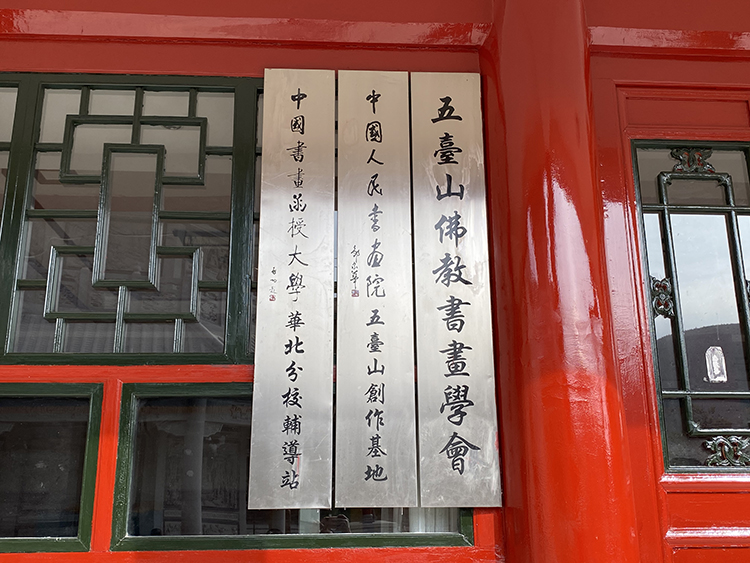 五臺山佛教書畫學會
中國人民書画院五臺山創作基地
中國書畫函授大學華北分校輔導站
启功题